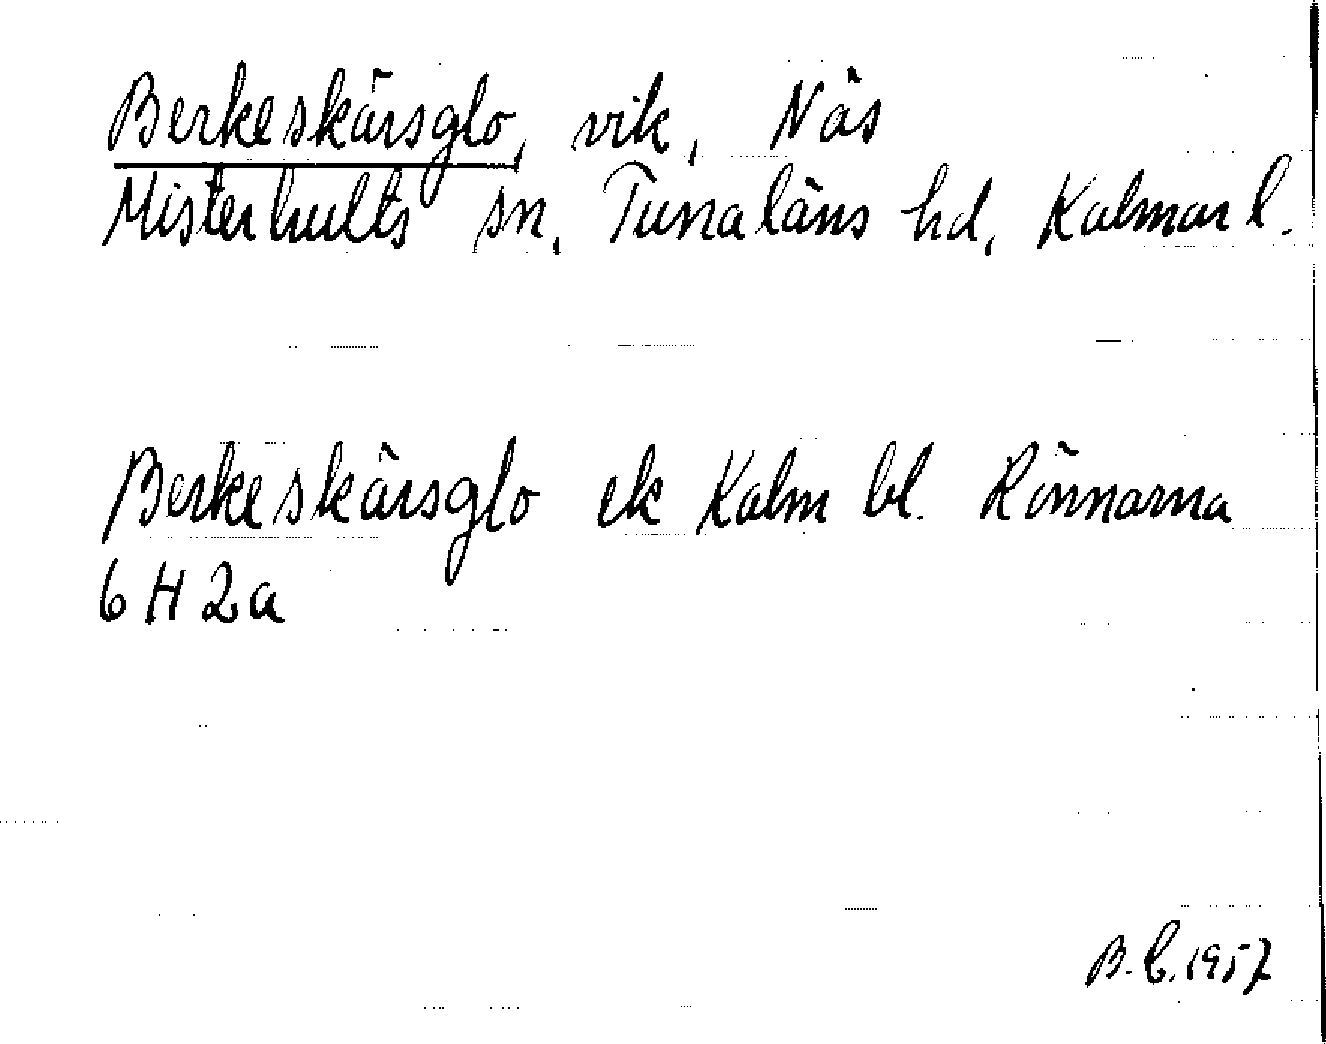 Berkeskärsglo, vik, Näs
Misterhults sn, Tunaläns hd, Kalmar l.
Berkeskärsglo ek Kalm bl. Rönnarna
6 H 2a
B. C. 1957